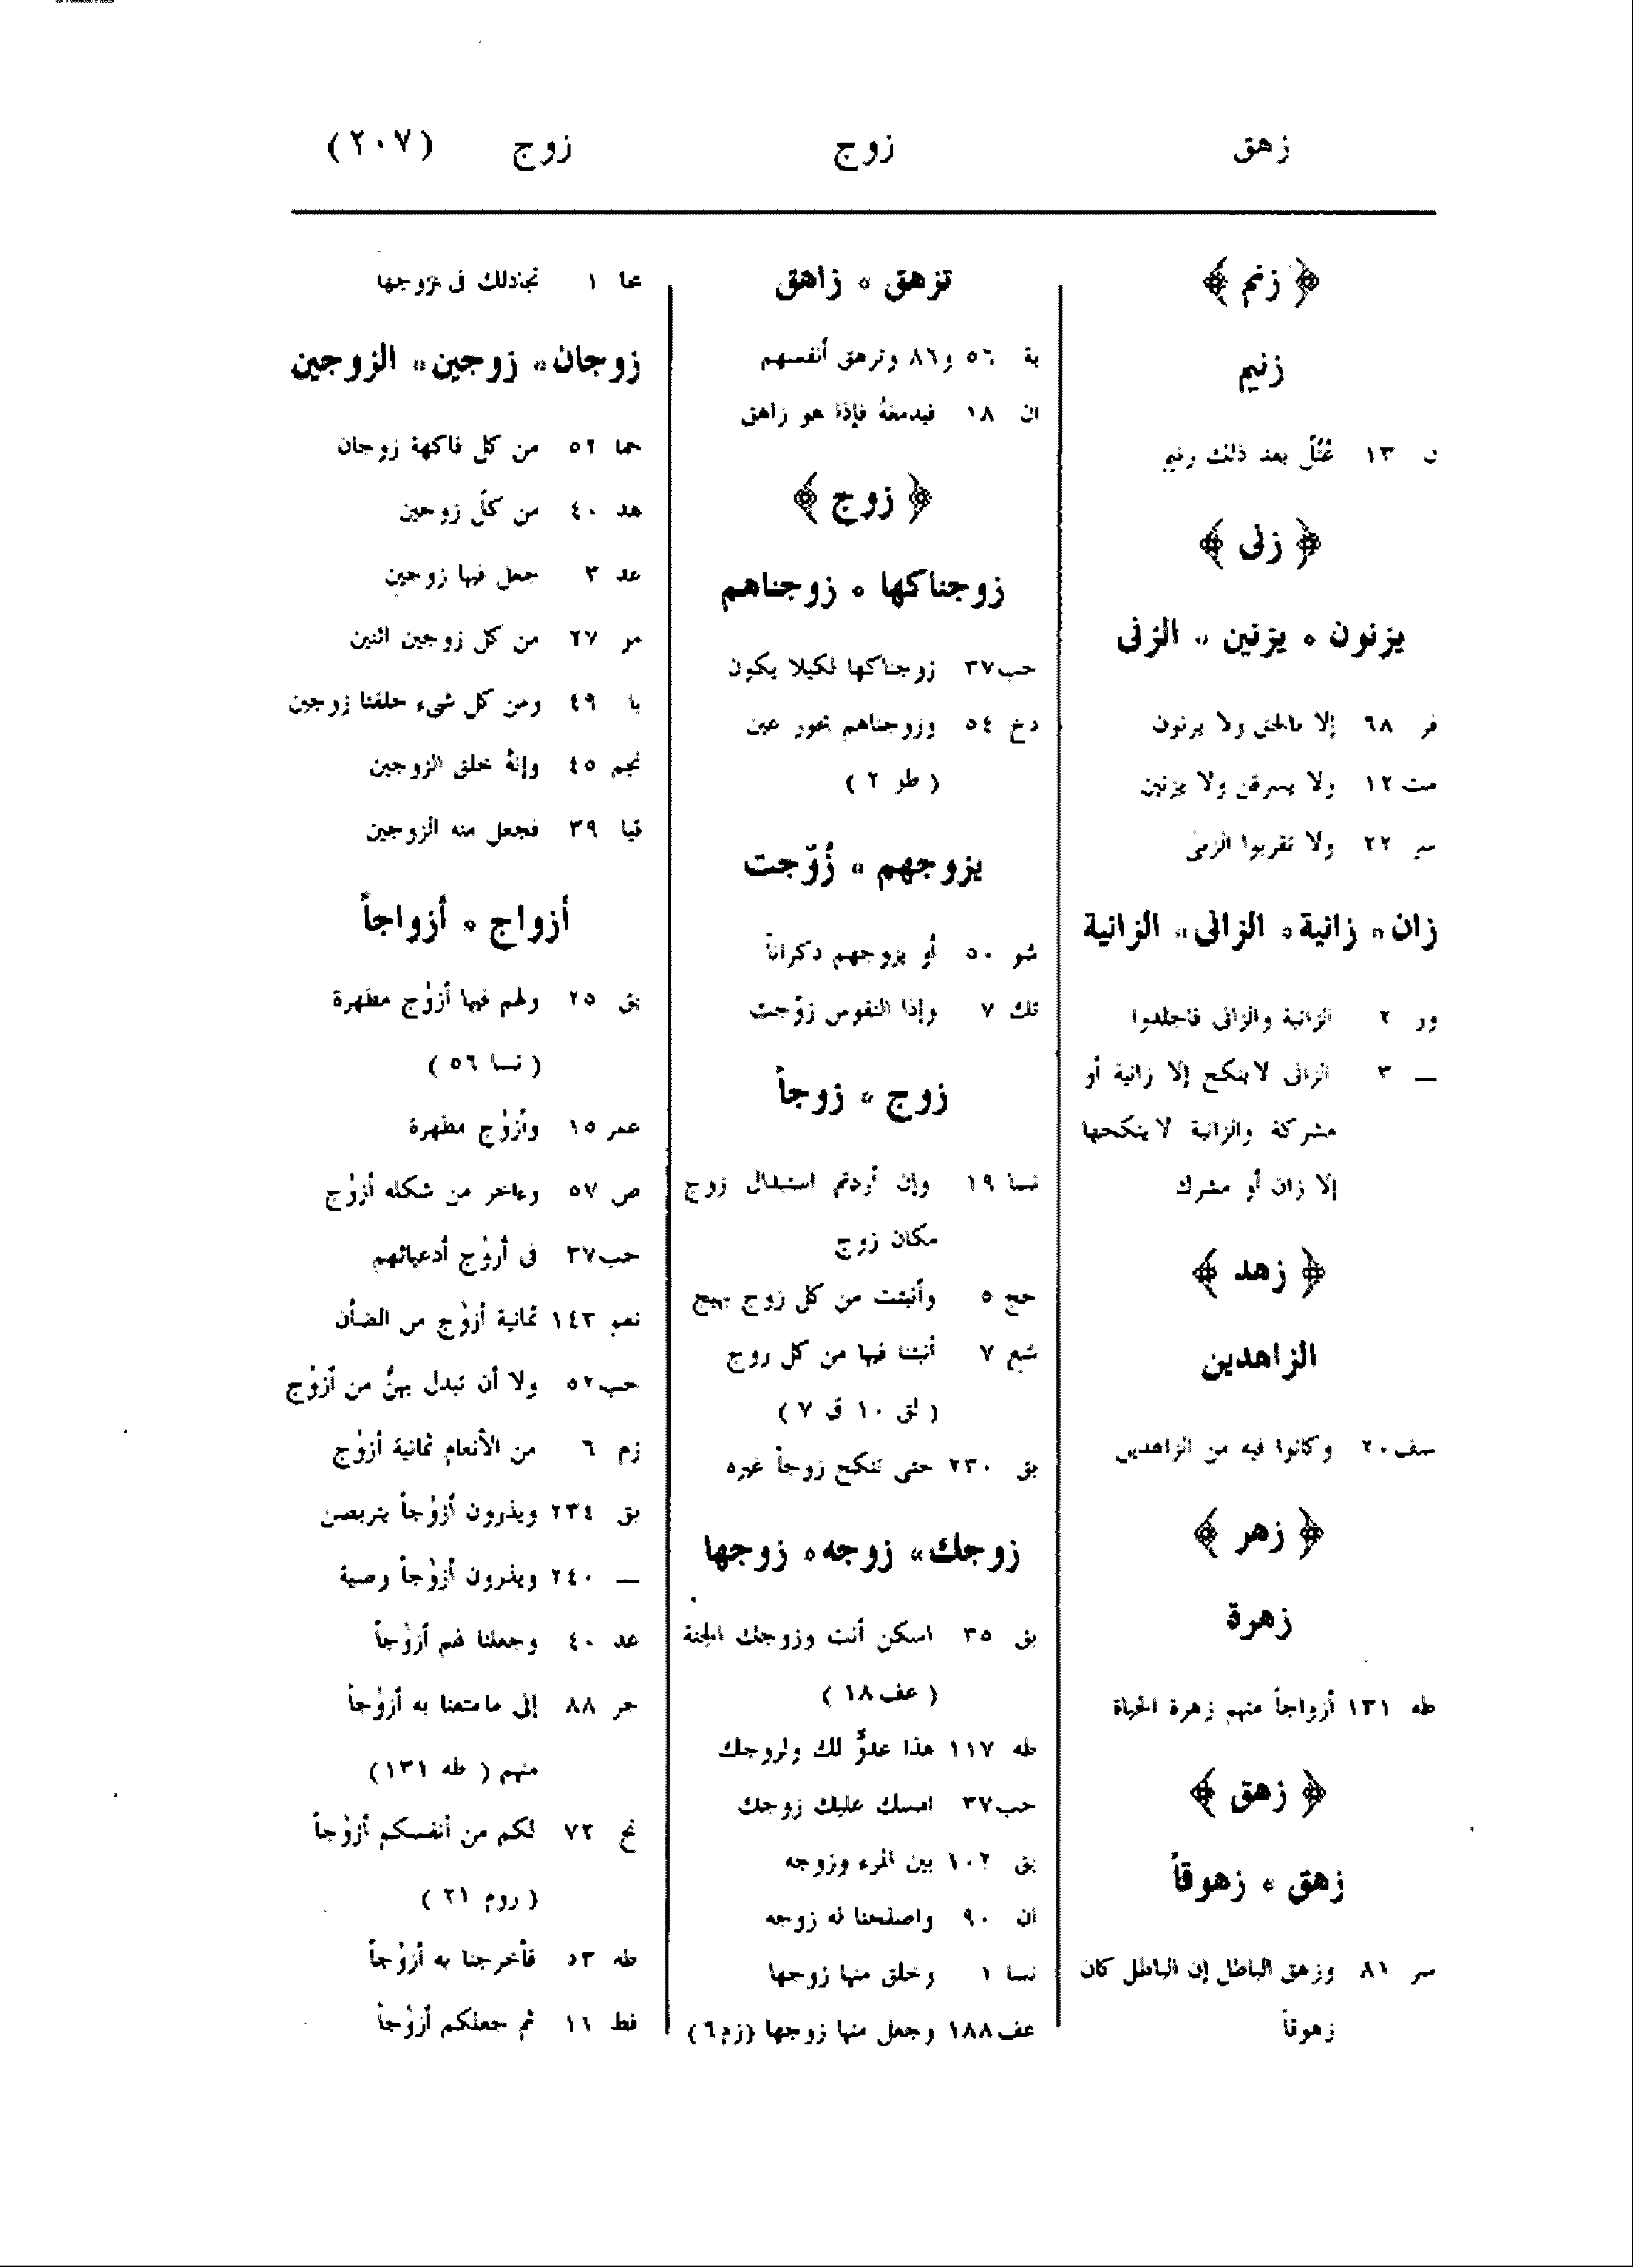 زهق
زوج
زوج
(٢٠٧)
﴿ زنم ﴾
زنيم
ن ١٣ عُتُلّ بعد ذلك زنيم
﴿ زنى ﴾
يزنون ٥ يزنين ٥ الزنى
فر ٦٨ إلا بالحق ولا يزنون
مت ١٢ ولا يسرقن ولا يزنين
سر ٣٢ ولا تقربوا الزنى
زان ٥ زانية ٥ الزانى ٥ الزانية
ور ٢ الزانية والزانى فاجلدوا
— ٣ الزانى لا ينكح إلا زانية أو
مشركة والزانية لا ينكحها
إلا زان أو مشرك
﴿ زهد ﴾
الزاهدين
سف ٢٠ وكانوا فيه من الزاهدين
﴿ زهر ﴾
زهرة
طه ١٣١ أزواجاً منهم زهرة الحياة
﴿ زهق ﴾
زهق ٥ زهوقاً
سر ٨١ وزهق الباطل إن الباطل كان
زهوقاً
تزهق ٥ زاهق
بة ٥٦ و٨٦ وتزهق أنفسهم
ان ١٨ فيدمغهُ فإذا هو زاهق
﴿ زوج ﴾
زوجناكها ٥ زوجناهم
حب ٣٧ زوجناكها لكيلا يكون
دخ ٥٤ وزوجناهم بحور عين
( طو ٢ )
يزوجهم ٥ زُوّجت
شو ٥٠ أو يزوجهم ذكراناً
تك ٧ وإذا النفوس زوّجت
زوج ٥ زوجاً
نسا ١٩ وإن أردتم استبدال زوج
مكان زوج
حج ٥ وأنبتت من كل زوج بهيج
شع ٧ أنبتنا فيها من كل زوج
( لق ١٠ ق ٧ )
بق ٢٣٠ حتى تنكح زوجاً غيره
زوجك ٥ زوجه ٥ زوجها
بق ٣٥ اسكن أنت وزوجك الجنة
( عف ١٨ )
طه ١١٧ هذا عدوٌّ لك ولزوجك
حب ٣٧ امسك عليك زوجك
بق ١٠٢ بين المرء وزوجه
ان ٩٠ واصلحنا له زوجه
نسا ١ وخلق منها زوجها
عف ١٨٨ وجعل منها زوجها (زم ٦)
محا ١ تجادلك فى زوجها
زوجان ٥ زوجين ٥ الزوجين
حما ٥٢ من كل فاكهة زوجان
هد ٤٠ من كلّ زوجين
عد ٣ جعل فيها زوجين
مو ٢٧ من كل زوجين اثنين
يا ٤٩ ومن كل شىء خلقنا زوجين
نجم ٤٥ وإنهُ خلق الزوجين
قيا ٣٩ فجعل منه الزوجين
أزواج ٥ أزواجاً
بق ٢٥ ولهم فيها أزوٰج مطهرة
( نسا ٥٦ )
عمر ١٥ وأزوٰج مطهرة
ص ٥٧ وءاخر من شكله أزوٰج
حب ٣٧ فى أزوٰج أدعيائهم
نعم ١٤٣ ثمانية أزوٰج من الضأن
حب ٥٢ ولا أن تبدل بهنّ من أزوٰج
زم ٦ من الأنعام ثمانية أزوٰج
بق ٢٣٤ ويذرون أزوٰجاً يتربصن
— ٢٤٠ ويذرون أزوٰجاً وصية
عد ٤٠ وجعلنا لهم أزوٰجاً
حر ٨٨ إلى ما متعنا به أزوٰجاً
منهم ( طه ١٣١ )
نح ٧٢ لكم من أنفسكم أزوٰجاً
( روم ٢١ )
طه ٥٣ فأخرجنا به أزوٰجاً
فط ١٦ ثم جعلكم أزوٰجاً